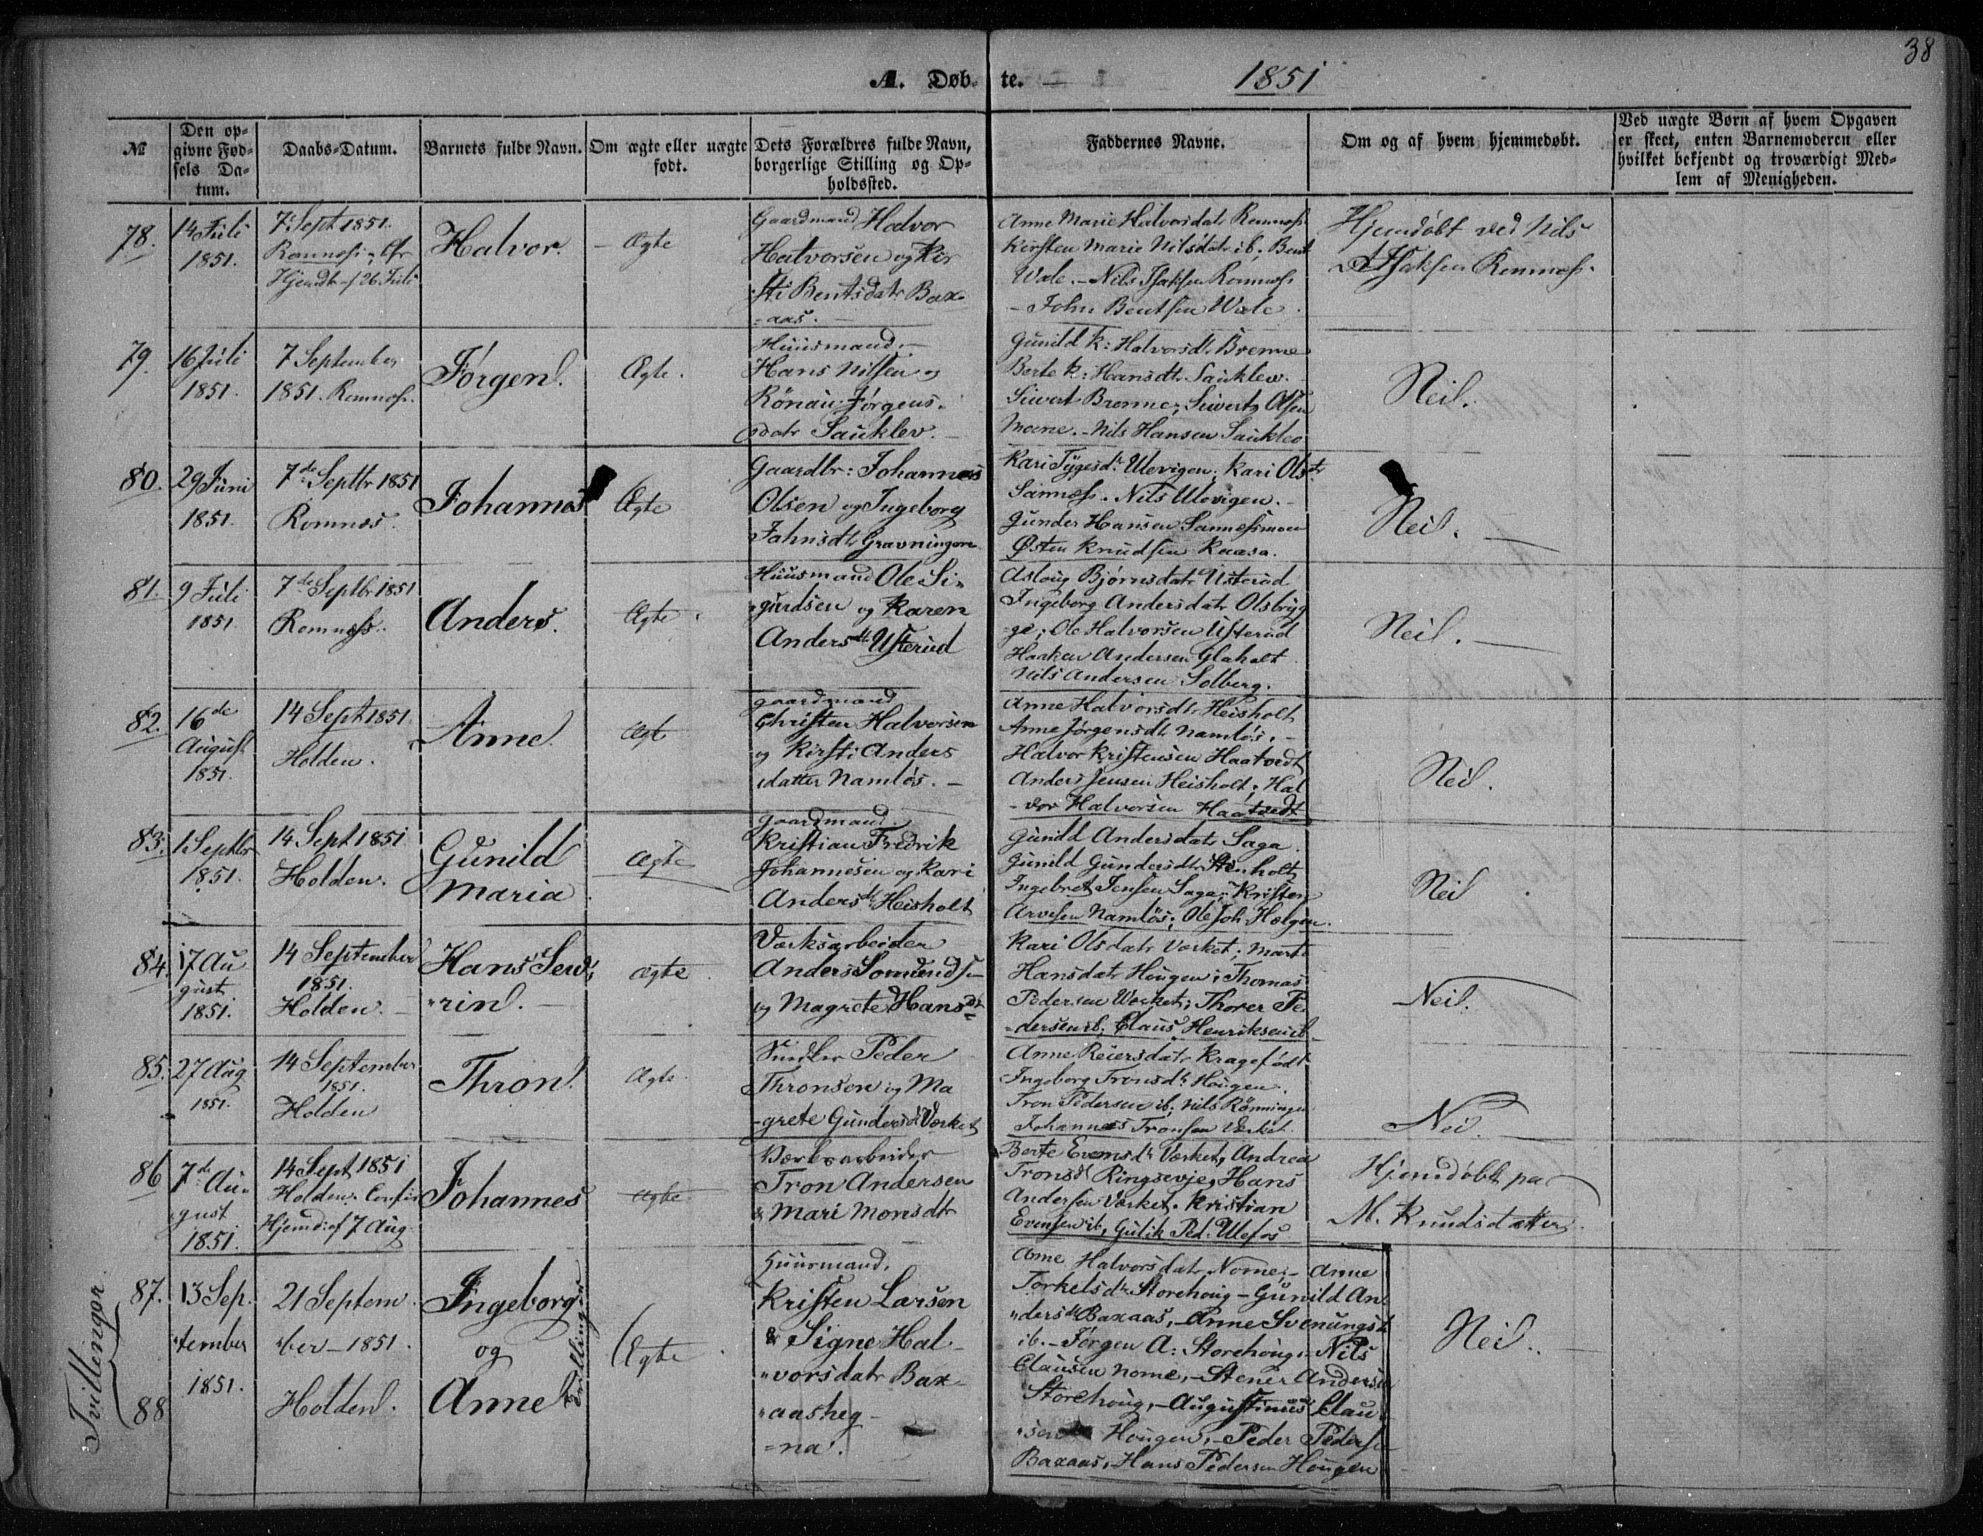 38
A. Døb- te. 1851
№
Den op-
givne Fød-
sels Da-
tum.
Daabs-Datum.
Barnets fulde Navn.
Om ægte eller uægte
født.
Dets Forældres fulde Navn,
borgerlige Stilling og Op-
holdssted.
Faddernes Navne.
Om og af hvem hjemmedøbt.
Ved uægte Børn af hvem Opgaven
er skeet, enten Barnemoderen eller
hvilket bekjendt og troværdigt Med-
lem af Menigheden.
78.
14 Juli
1851.
7: Sept 1851.
Romnæs
Hjemdb. 26 Juli
Halvor.
Ægte
Gaardmand Halvor
Halvorsen og Kir
sti Bentsdatr Bax-
aas.
Anne Marie Halvorsdatr Romnæs
Kirsten Marie Nilsdatr ib; Bent
Wale. - Nils Isaksen Romnæs
- John Bentsen Wale
Hjemdøbt ved Nils
Isaksen Romnæs.
79.
16 Juli
1851.
7 September
1851. Romnæs.
Jørgen.
Ægte.
Huusmand
Hans Nilsen og
Rönau Jørgens-
datr Sauklev.
Gunild K: Halvorsdtr Brenne
Berte K: Hansdtr Sauklev.
Sivert Brenne; Sivert Olsen
Moene. - Nils Hansen Sauklev
Neil.
80.
29 Juni
1851.
7de Septbr 1851
Romnes.
Johannes
Ægte
Gaardbr: Johannes
Olsen og Ingeborg
Jahnsdtr Gravningen
Kari Tygesdr Ulevigen; Kari Olsdtr
Sannæss. Nils Ulevigen.
Gunder Hansen Sannessmoen
Østen Knudsen Kaasa.
Neil.
81.
9 Juli
1851.
7de Septbr 1851
Romnæss.
Anders.
Ægte
Huusmand Ole Si-
gurdsen og Karen
Andersdtr Usterud
Aslaug Bjørnsdatr Usterud
Ingeborg Andersdatr Olsbryg
ge; Ole Halvorsen Usterud
Haaken Andersen Glaholt
Nils Andersen Solberg.
Neil.
82.
16de
August
1851.
14 Sept 1851.
Holden.
Anne.
Ægte
gaardmand
Christen Halvorsen
og Kirsti Anders
datter Namløs.
Anne Halvorsdtr Heisholt
Anne Jørgensdtr Namløs.
Halvor Kristensen Haatvedt
Anders Jensen Heisholt; Hal
- vor Halvorsen Haatvedt
Neil.
83.
1. Septbr
1851.
14 Sept 1851
Holden.
Gunild
Maria
Ægte
gaardmand.
Kristian Fredrik
Johannesen og Kari
Andersdtr Heisholt
Gunild Andersdatr Saga.
Gunild Gundersdtr Stenholt
Ingebret Jensen Saga; Kristen
Arvesen Namløs; Ole Joh. Helgen.
Neil
84.
17 Au
gust
1851.
14 September
1851.
Holden.
Hans Seve-
rin.
Ægte
Værksarbeider
Anders Somundsen
og Magrete Hansdtr
Kari Olsdatr Værket; Marte
Hansdatr Hougen; Thomas
Pedersen Værket; Thorer Pe-
dersen ib; Claus Henriksen ib.
Neil.
85.
27 Aug
1851.
14 September
1851.
Holden
Thron.
Ægte
Smeder Peder
Thronsen og Ma
grete Gundersdr Værket
Anne Reiersdatr Kragefødt
Ingeborg Tronsdtr Hougen.
Tron Pedersen ib; Nils Rønningen
Johannes Tronsen Værket.
Nei
86
7de Au-
gust
1851.
14 Sept. 1851
Holden. Confir
Hjemd: af 7 Aug.
Johannes
Ægte
Værksarbeider
Tron Andersen
& Mari Monsdtr
Berte Evensdr Værket, Andrea
Tronsd. Ringsevje, Hans
Andersen Værket. Kristian
Evensen ib, Gulik Ped. Ulefos
Hjemdøbt pa
M. Knudsdatter.
Tvillinger.
87.
88
13 Sep.
tember
1851.
21 Septem
ber - 1851.
Holden.
Ingeborg
og
Anne
Tvillinger
Ægte
Huusmand.
Kristen Larsen
& Signe Hal-
vorsdatr Bax-
aasheg-
na.
Anne Halvorsdatr Nome; - Anne
Torkelsdr Storehoug - Gunild An
dersdr Baxaas, - Anne Svenungsd.
ib. - Jørgen A: Storehoug, - Nils
Clausen Nome, - Stener Andersen
Storehoug, - Augustinus Clau
sen Hougen, - Peder Peders
Baxaas, Hans Pedersen Hougen
Neil.